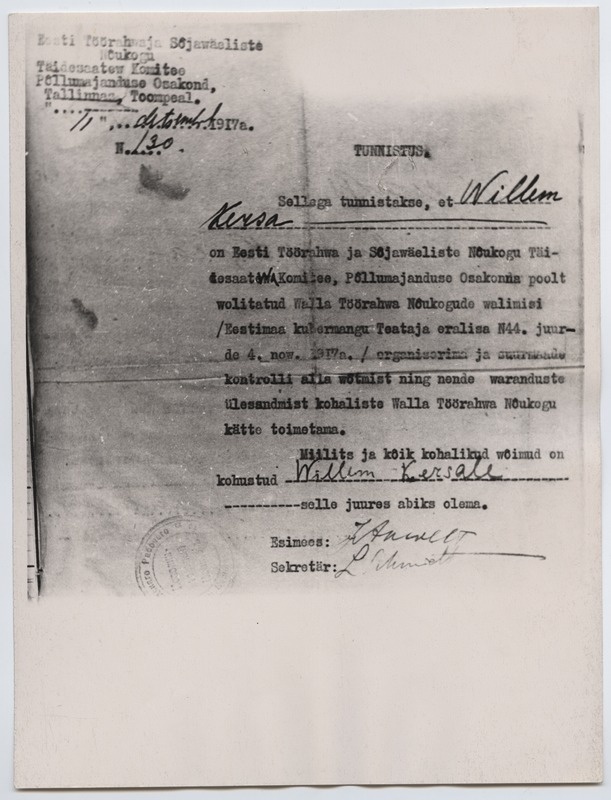 Eesti Töörahwaja Sõjawäeliste
Nõukogu
Täidesaatew Komitee
Põllumajanduse Osakond,
Tallinnas, Toompeal.
"....11 ",..detsembril..1917a.
N.130.
TUNNISTUS.
Sellega tunnistakse, et Willem
Kersa
on Eesti Töörahwa ja Sõjawäeliste Nõukogu Täi-
desaatewa Komitee, Põllumajanduse Osakonna poolt
wolitatud Walla Töörahwa Nõukogude walimisi
/Eestimaa kubermangu Teataja eralisa N44. juur-
de 4. now. 1917a./ organiseerima ja suurmaade
kontrolli alla wõtmist ning nende waranduste
ülesandmist kohaliste Walla Töörahwa Nõukogu
kätte toimetama.
Miilits ja kõik kohalikud wõimud on
kohustud Willem Kersale
----------selle juures abiks olema.
Esimees:
Sekretär: L Schmidt